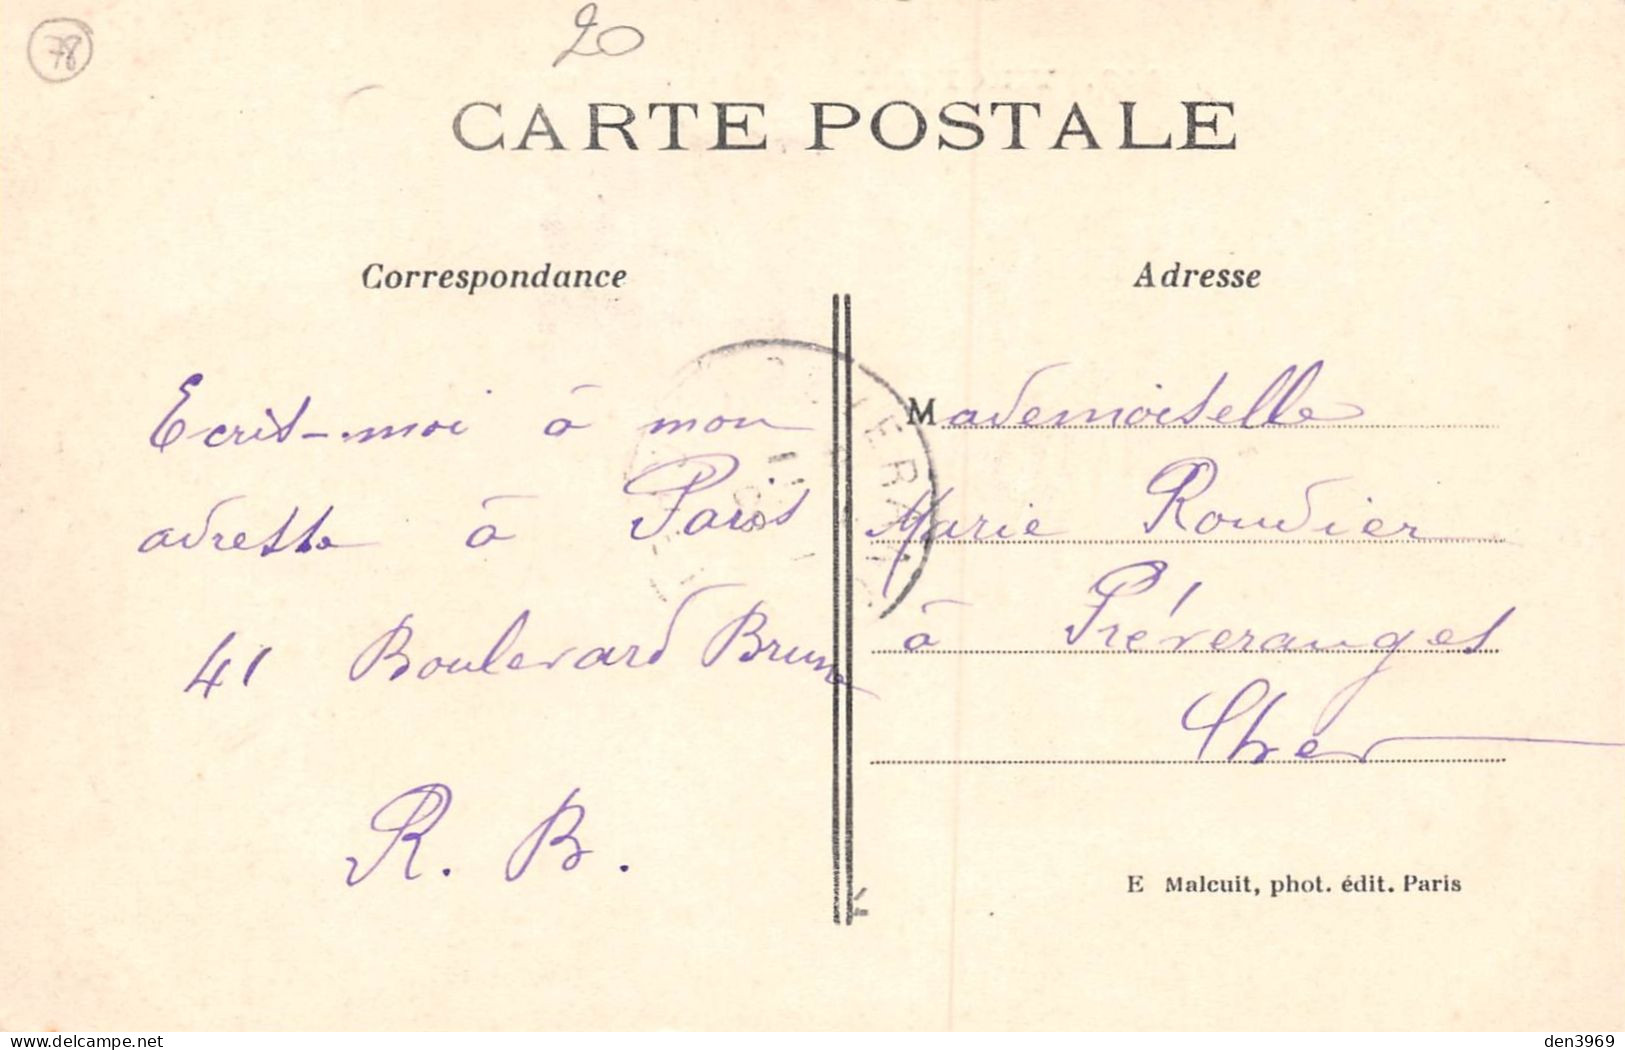 78
20
CARTE POSTALE
Correspondance
Ecris-moi à mon
adresse à Paris
41 Boulevard Brune
R. B.
Adresse
Mademoiselle
Marie Roudier
à Préveranges
Cher
E Malcuit, phot. édit. Paris
delcampe.net
den3969